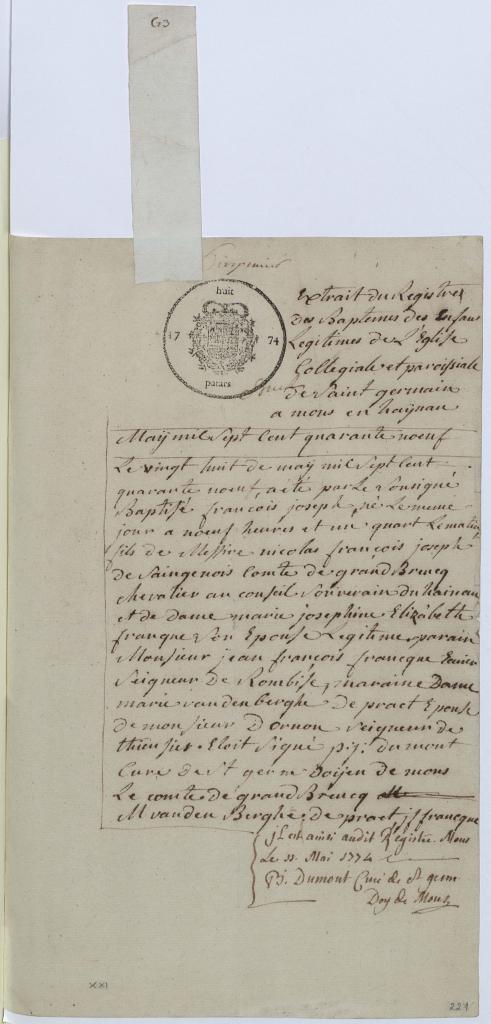 G3
huit
17 74
patars
Extrait du Registre
Des Baptemes des Enfans
Legitimes de L'Eglise
Collegiale et paroissiale
de Saint germain
a mons en haÿnau
Maÿ mil Sept Cent quarante noeuf
Le vingt huit de maÿ mil Sept Cent
quarante noeuf, a été par Le Sousigné
Baptisé francois joseph, né Le meme
jour a noeuf heures et un quart Le matin
fils de Messire nicolas françois joseph
de Saingenois Comte de grand Breucq
Chevalier au Conseil Souverain du hainau
et de Dame marie josephine Elizabeth
franque Son Epouse Legitime, parain
Monsieur jean françois francque Ecuier
Seigneur de Rombise, maraine Dame
marie vandenberghe De praet Epouse
de monsieur D'ornou Seigneur de
thieusies. Etoit Signé p: j: dumont
Curé De St germ Doijen de mons
Le comte de grand Breucq
M vanden Berghe, de praet jf francque
jl est ainsi audit Régistre Mons
Le 11 Mai 1774
P.j. Dumont Curé de St germ
Doy de Mons
XXI
221